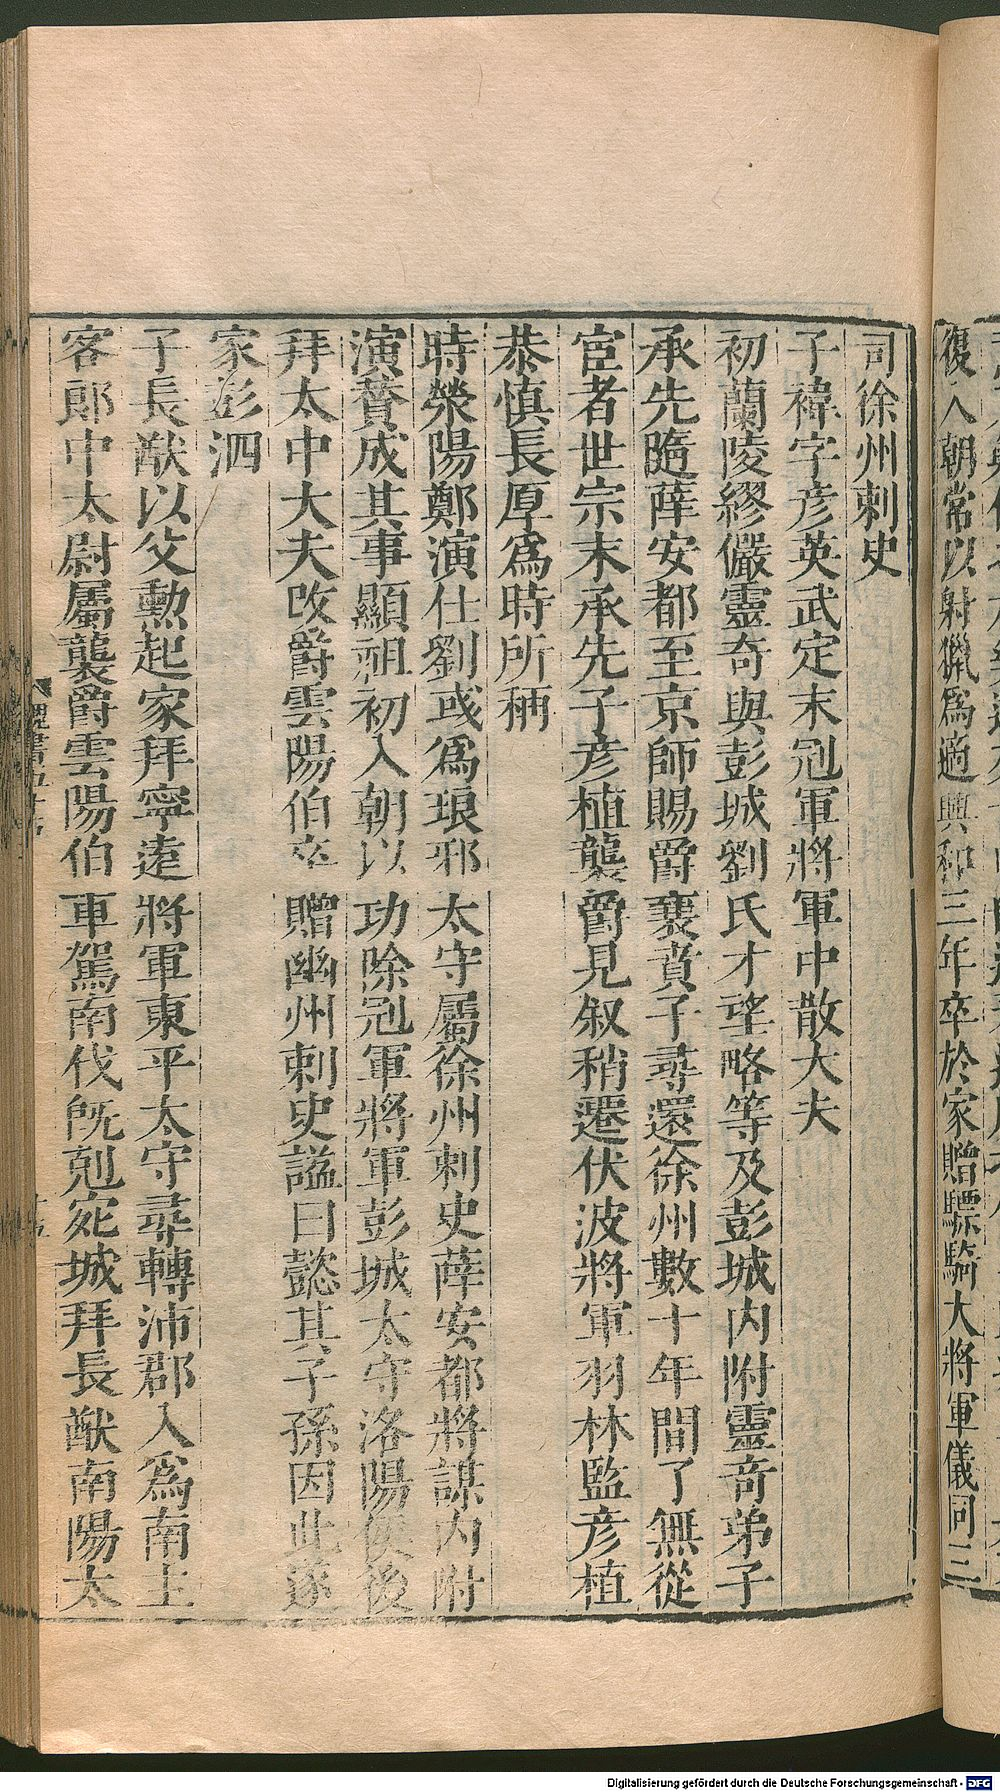 復入朝常以射獵爲適興和三年卒於家贈驃騎大將軍儀同三
司徐州刺史
子褘字彥英武定末冠軍將軍中散大夫
初蘭陵繆儼靈奇與彭城劉氏才望略等及彭城內附靈奇弟子
承先隨薛安都至京師賜爵襄賁子尋還徐州數十年間了無從
宦者世宗末承先子彥植襲爵見叙稍遷伏波將軍羽林監彥植
恭慎長厚爲時所稱
時滎陽鄭演仕劉彧爲琅邪太守屬徐州刺史薛安都將謀內附
演贊成其事顯祖初入朝以功除冠軍將軍彭城太守洛陽侯後
拜太中大夫改爵雲陽伯卒贈幽州刺史謚曰懿其子孫因此遂
家彭泗
子長猷以父勳起家拜寧遠將軍東平太守尋轉沛郡入爲南主
客郎中太尉屬襲爵雲陽伯車駕南伐旣剋宛城拜長猷南陽太
Digitalisierung gefördert durch die Deutsche Forschungsgemeinschaft - DFG